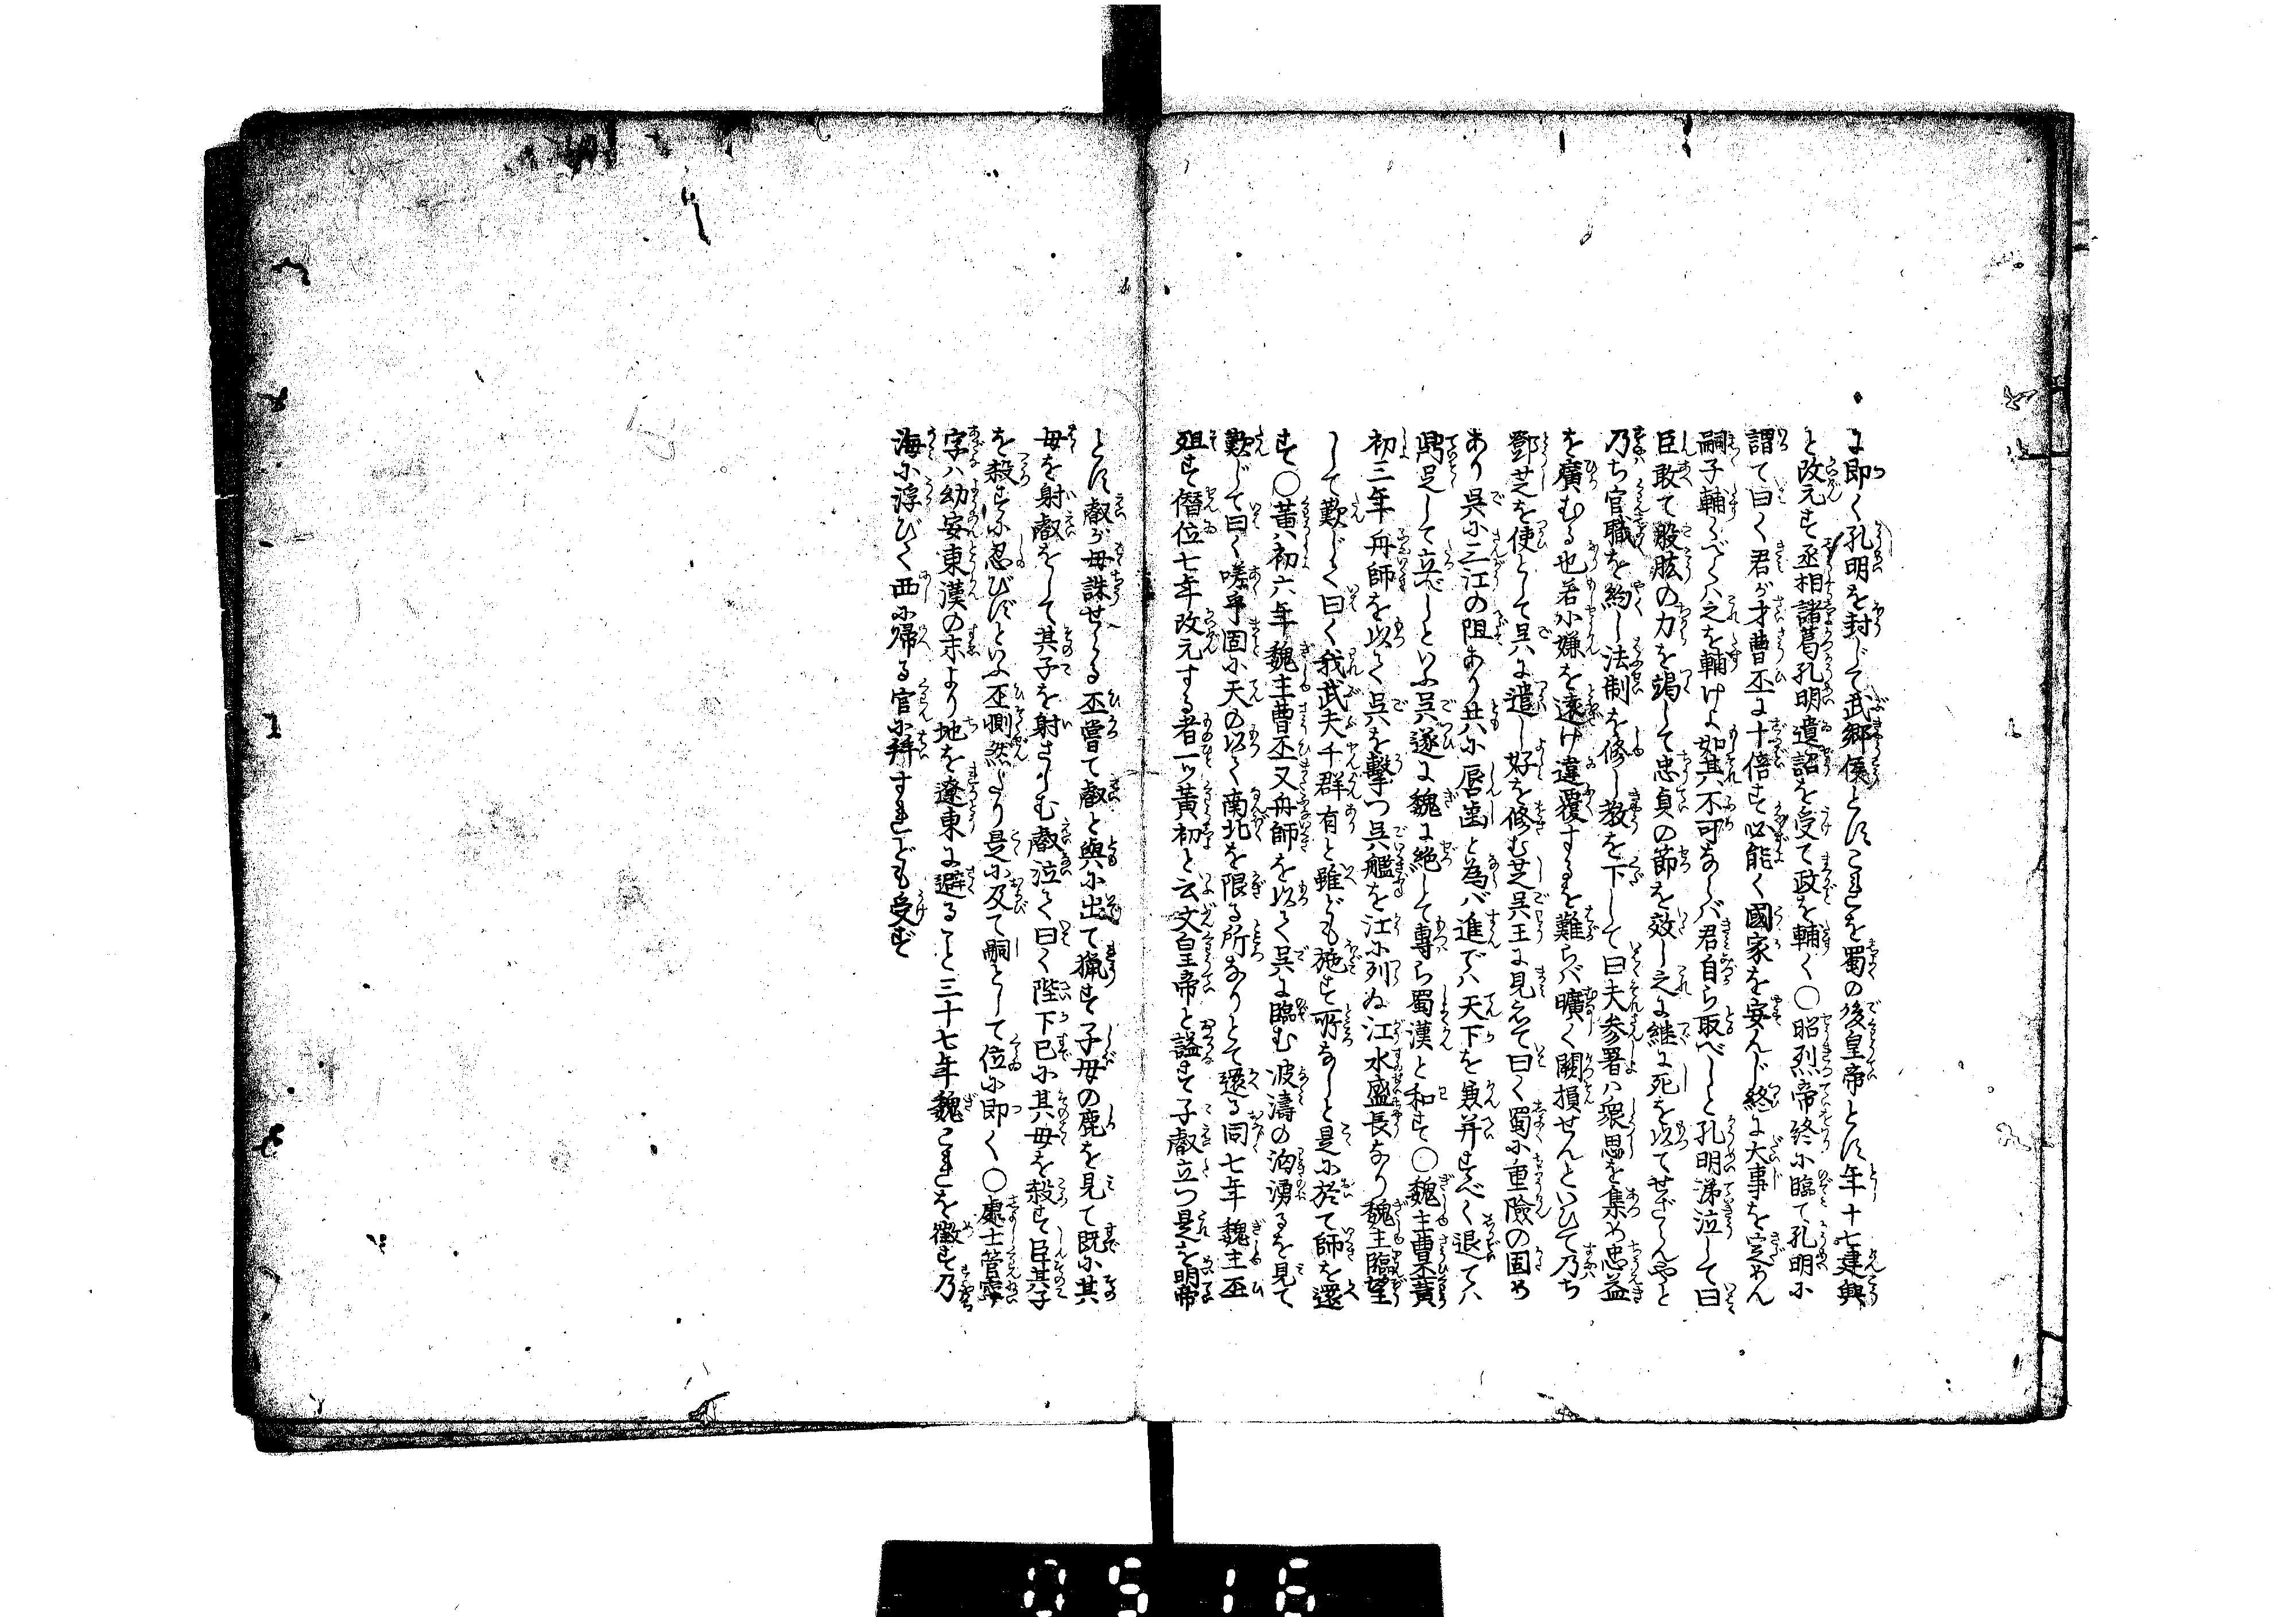 に即く孔明を封じて武郷侯とすこれを蜀の後皇帝とす年十七建興
と改元す丞相諸葛孔明遺詔を受て政を輔く〇昭烈帝終に臨て孔明に
謂て曰く君が才曹丕に十倍す必能く國家を安んじ終に大事を定めん
嗣子輔くべくハ之を輔けよ如其不可ならバ君自ら取べしと孔明涕泣して曰
臣敢て股肱の力を竭して忠貞の節を效し之に継に死を以てせざらんやと
乃ち官職を約し法制を修し教を下して曰夫参署ハ衆思を集め忠益
を廣むる也若小嫌を遠け違覆するを難らバ曠く闕損せんといひて乃ち
鄧芝を使として呉に遣し好を修む芝呉王に見えて曰く蜀に重險の固め
あり呉に三江の阻あり共に唇歯と為バ進でハ天下を兼并すべく退てハ
鼎足して立べしといふ呉遂に魏に絶して専ら蜀漢と和す〇魏主曹丕黄
初三年舟師を以て呉を撃つ呉艦を江に列ぬ江水盛長なり魏主臨望
して歎じて曰く我武夫千群有と雖ども施す所なしと是に於て師を還
す〇黄初六年魏主曹丕又舟師を以て呉に臨む波濤の洶湧るを見て
歎じて曰く嗟乎固に天の以て南北を限る所なりとて還る同七年魏主丕
殂す僭位七年改元する者一ツ黄初と云文皇帝と謚す子叡立つ是を明帝
とす叡が母誅せらる丕嘗て叡と與に出て猟す子母の鹿を見て既に其
母を射叡をして其子を射さしむ叡泣て曰く陛下已に其母を殺す臣其子
を殺すに忍びずといふ丕惻然たり是に及て嗣として位に即く〇處士管寧
字ハ幼安東漢の末より地を遼東に避ること三十七年魏これを徴す乃
海に浮びて西に帰る官に拝すれども受ず
0516